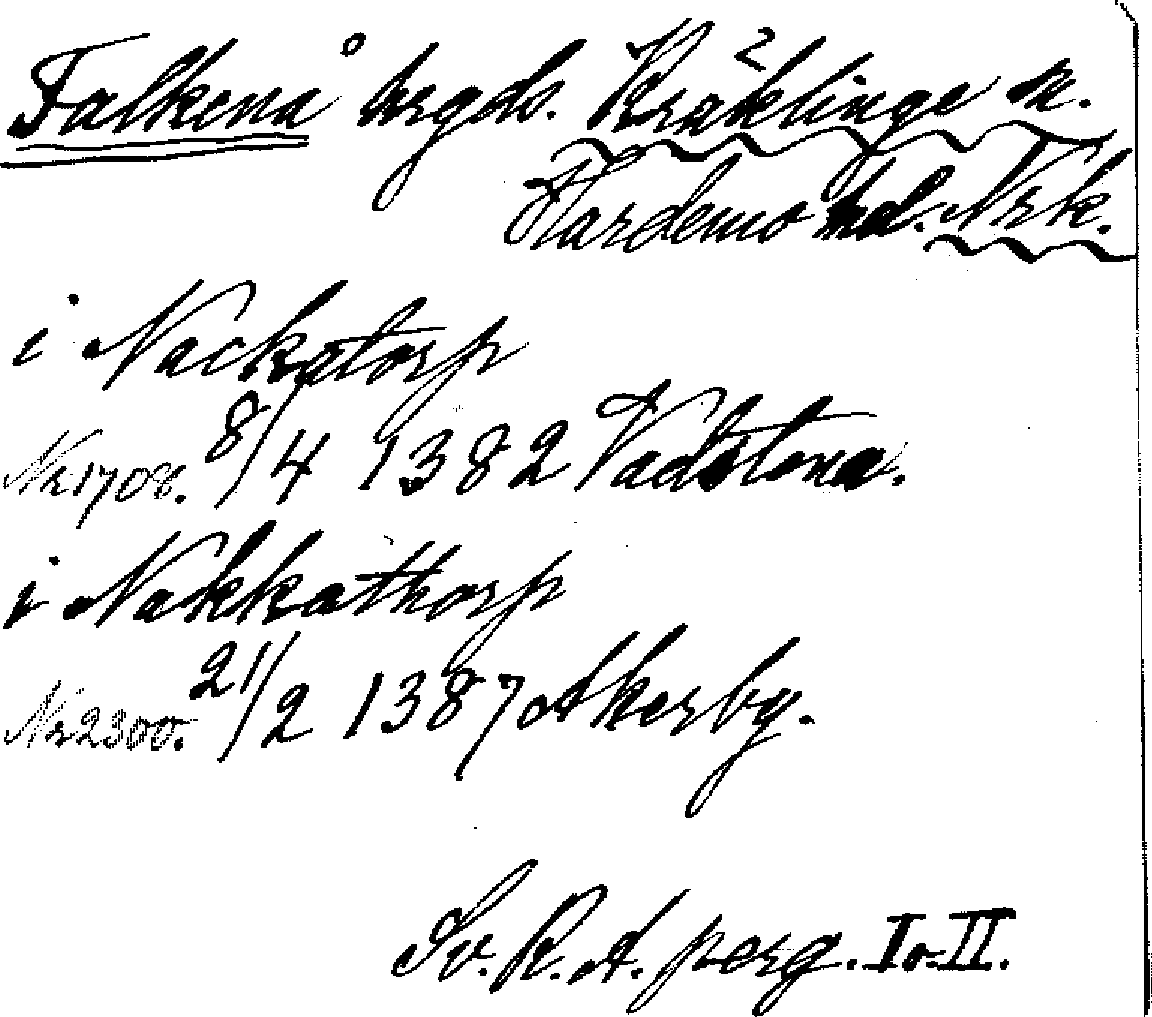 Falkenå hrgds. Kräklinge sn.
Hardemo hd. Nrk.
i Nackatorp
Nr 1708. 8/4 1382 Vadstena.
i Nakkathorp
Nr 2300. 21/2 1387 Akerby.
Sv. R. A. perg. I o. II.